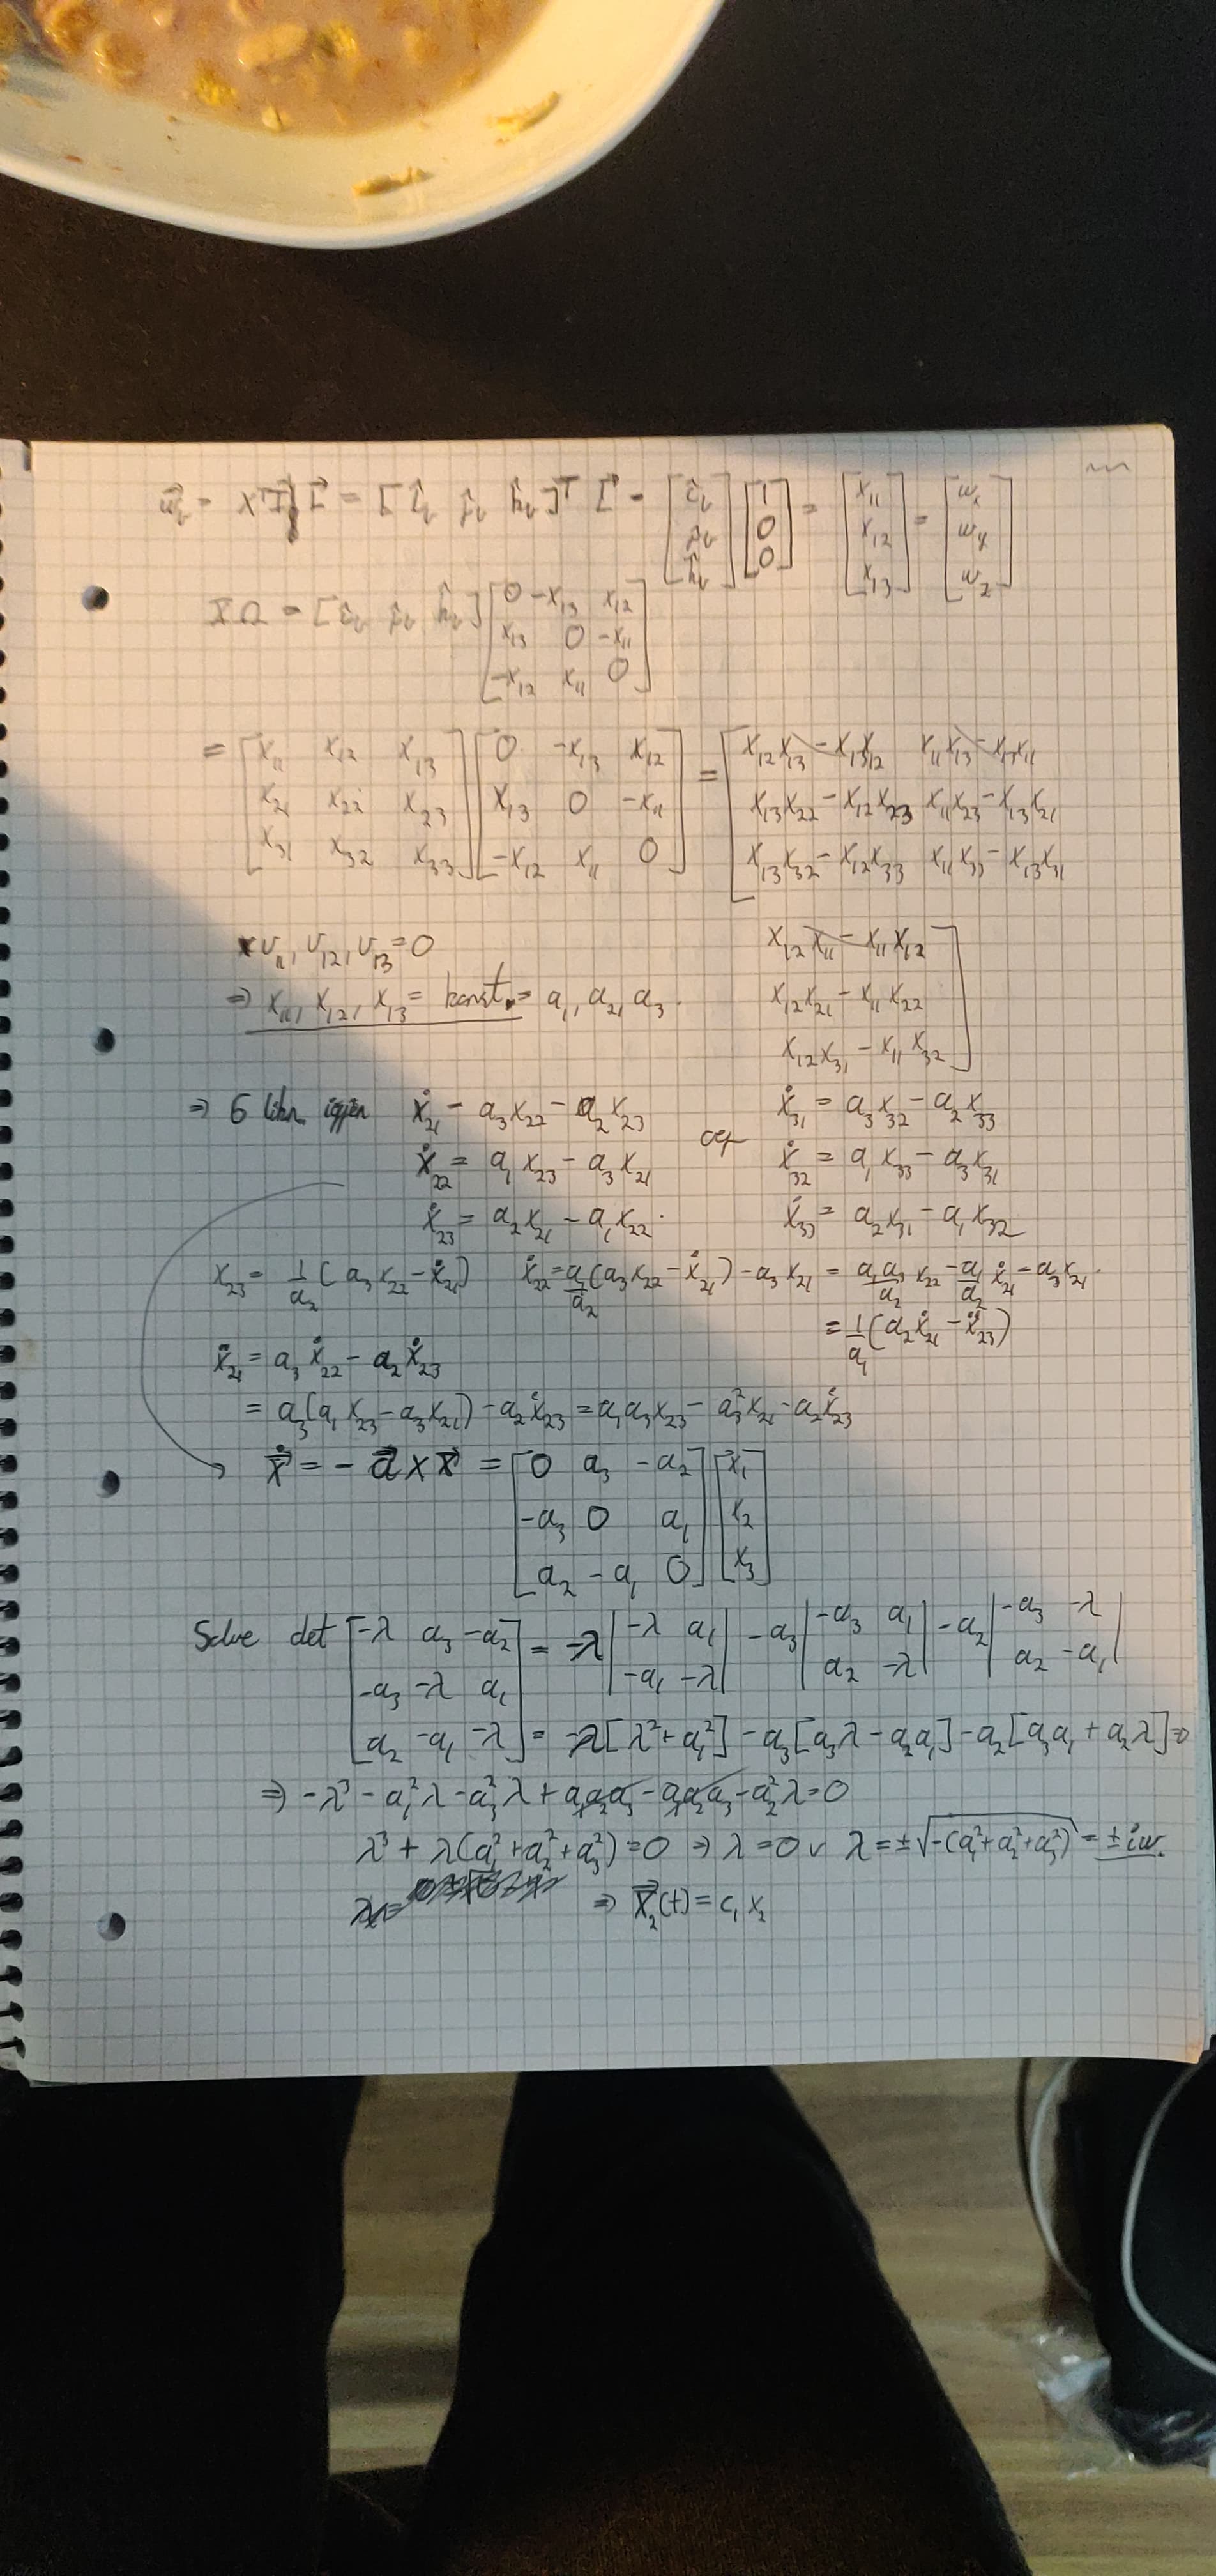 ω⃗_b = X^T I L⃗ = [î_b ĵ_b k̂_b]^T L⃗ = [î_b; ĵ_b; k̂_b] [1; 0; 0] = [x₁₁; x₁₂; x₁₃] = [ω_x; ω_y; ω_z]
XΩ = [î_b ĵ_b k̂_b] [0 -x₁₃ x₁₂; x₁₃ 0 -x₁₁; -x₁₂ x₁₁ 0]
= [x₁₁ x₁₂ x₁₃; x₂₁ x₂₂ x₂₃; x₃₁ x₃₂ x₃₃] [0 -x₁₃ x₁₂; x₁₃ 0 -x₁₁; -x₁₂ x₁₁ 0] = [x₁₂x₁₃ - x₁₃x₁₂ x₁₁x₁₃ - x₁₃x₁₁
x₁₃x₂₂ - x₁₂x₂₃ x₁₁x₂₃ - x₁₃x₂₁
x₁₃x₃₂ - x₁₂x₃₃ x₁₁x₃₃ - x₁₃x₃₁
x₁₂x₁₁ - x₁₁x₁₂
x₁₂x₂₁ - x₁₁x₂₂
x₁₂x₃₁ - x₁₁x₃₂]
v₁₁, v₁₂, v₁₃ = 0
⇒ x₁₁, x₁₂, x₁₃ = konst. = a₁, a₂, a₃.
⇒ 6 likn. igjen ẋ₂₁ = a₃x₂₂ - a₂x₂₃ og ẋ₃₁ = a₃x₃₂ - a₂x₃₃
ẋ₂₂ = a₁x₂₃ - a₃x₂₁ ẋ₃₂ = a₁x₃₃ - a₃x₃₁
ẋ₂₃ = a₂x₂₁ - a₁x₂₂. ẋ₃₃ = a₂x₃₁ - a₁x₃₂
x₂₃ = 1/a₂ (a₃x₂₂ - ẋ₂₁) ẋ₂₂ = a₁/a₂ (a₃x₂₂ - ẋ₂₁) - a₃x₂₁ = a₁a₃/a₂ x₂₂ - a₁/a₂ ẋ₂₁ - a₃x₂₁.
= 1/a₁ (a₂ẋ₂₁ - ẍ₂₃)
ẍ₂₁ = a₃ẋ₂₂ - a₂ẋ₂₃
= a₃(a₁x₂₃ - a₃x₂₁) - a₂ẋ₂₃ = a₁a₃x₂₃ - a₃²x₂₁ - a₂ẋ₂₃
ẋ⃗ = - a⃗ × x⃗ = [0 a₃ -a₂; -a₃ 0 a₁; a₂ -a₁ 0] [x₁; x₂; x₃]
Solve det [-λ a₃ -a₂; -a₃ -λ a₁; a₂ -a₁ -λ] = -λ |-λ a₁; -a₁ -λ| - a₃ |-a₃ a₁; a₂ -λ| - a₂ |-a₃ -λ; a₂ -a₁|
= -λ[λ² + a₁²] - a₃[a₃λ - a₂a₁] - a₂[a₃a₁ + a₂λ] = 0
⇒ -λ³ - a₁²λ - a₃²λ + a₁a₂a₃ - a₁a₂a₃ - a₂²λ = 0
λ³ + λ(a₁² + a₂² + a₃²) = 0 ⇒ λ = 0 ∨ λ = ±√(-(a₁² + a₂² + a₃²)) = ±iω.
⇒ x⃗₂(t) = c₁ x₂